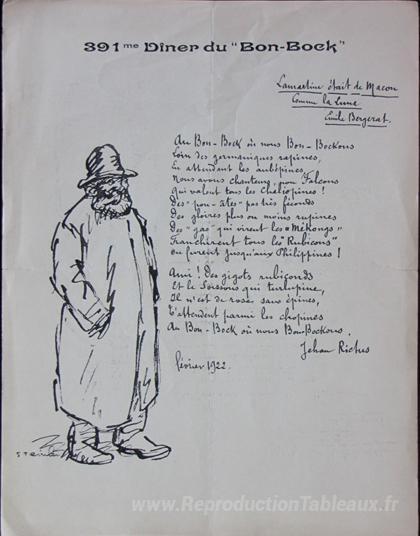 391me Dîner du "Bon-Bock"
Lamartine était de Macon
Comme la Lune
Emile Bergerat.
Au Bon-Bock où nous Bon-Bockons
Loin des germaniques rapines,
En attendant les aubépines,
Nous avons chanteurs pour Falcons
Qui valent tous les Chaliopines !
Des "pou-ètes" pas très féconds
Des gloires plus ou moins rupines
Des "gas" qui virent les "Mékongs"
Franchirent tous les "Rubicons"
Ou furent jusqu'aux Philippines !
Ami ! Des gigots rubiconds
Et le Soissons qui turlupine,
Il n'est de roses sans épines,
T'attendent parmi les chopines
Au Bon-Bock où nous Bon-Bockons.
Jehan Rictus
février 1922.
www.ReproductionTableaux.fr